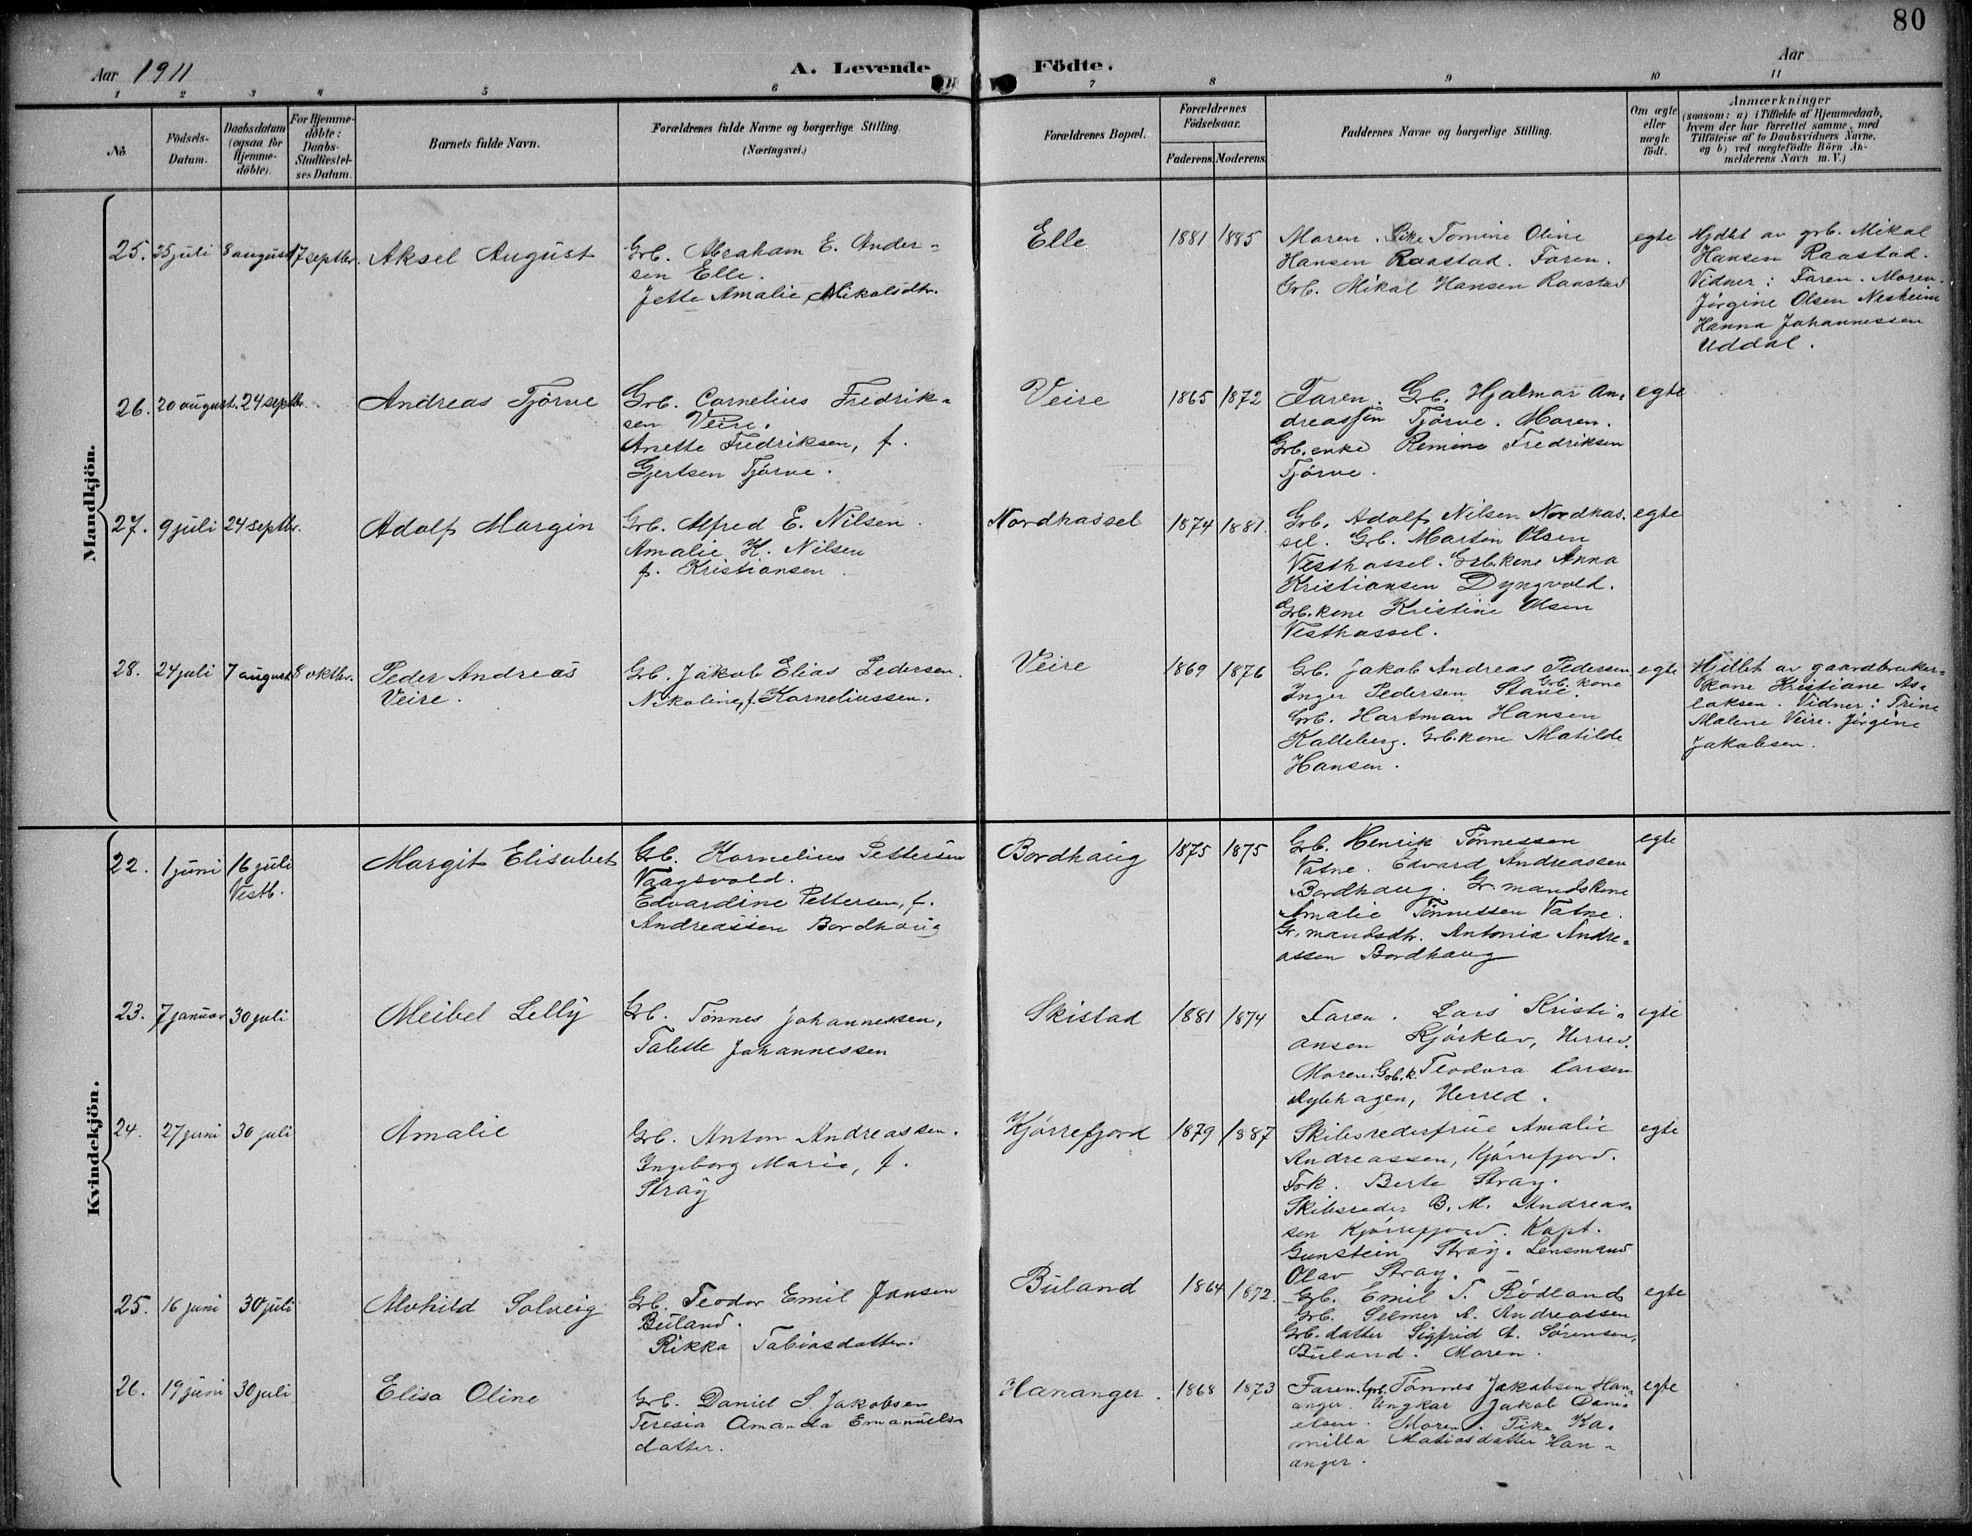 80
Aar 1911
A. Levende Födte.
Aar
1 2 3 4 5 6 7 8 9 10 11
No
Födsels-Datum.
Daabsdatum (ogsaa for Hjemmedöbte).
For Hjemmedöbte: Daabs-Stadfæstelses Datum.
Barnets fulde Navn.
Forældrenes fulde Navne og borgerlige Stilling.
(Næringsvei.)
Forældrenes Bopæl.
Forældrenes Födselsaar.
Faderens. Moderens.
Faddernes Navne og borgerlige Stilling.
Om ægte eller uægte födt.
Anmærkninger
(saasom: a) i Tilfælde af Hjemmedaab,
hvem der har forrettet samme, med
Tilföielse af to Daabsvidners Navne,
og b) ved uægtefödte Börn An-
melderens Navn m. V.)
Mandkjön.
25. 25 juli 8 august 17 septbr. Aksel August
Grb. Abraham E. Ander-
sen Elle.
Jette Amalie Mikalsdtr.
Elle 1881 1885
Moren. Pike Tomine Oline
Hansen Raastad. Faren.
Grb. Mikal Hansen Raastad
egte
Hjdbt av grb. Mikal
Hansen Raastad.
Vidner: Faren. Moren.
Jørgine Olsen Nesheim
Hanna Johannessen
Uddal.
26. 20 august. 24 septbr. Andreas Tjørve
Grb. Cornelius Fredrik-
sen Veire.
Anette Fredriksen, f.
Gjertsen Tjørve.
Veire 1865 1872
Faren. Grb. Hjalmar An-
dreassen Tjørve. Moren.
Grb. enke Remine Fredriksen
Tjørve.
egte
27. 9 juli 24 septbr. Adolf Margin
Grb. Alfred E. Nilsen
Amalie K. Nilsen
f. Kristiansen
Nordhassel 1874 1881.
Grb. Adolf Nilsen Nordhas-
sel. Grb. Marton Olsen
Vesthassel. Grb.kone Anna
Kristiansen Dyngvold.
Grb.kone Kristine Olsen
Vesthassel.
egte
28. 24 juli 7 august 8 oktbr. Peder Andreas
Veire.
Grb. Jakob Elias Pedersen.
Nikoline, f. Korneliussen.
Veire 1869 1876
Grb. Jakob Andreas Pedersen
Grb. kone
Inger Pedersen Stave.
Grb. Hartman Hansen
Kalleberg. Grb.kone Matilde
Hansen.
egte
Hjdbt av gaardbruker-
kone Kristiane As-
laksen. Vidner: Trine
Malene Veire. Jørgine
Jakobsen.
Kvindekjön.
22. 1 juni 16 juli
Vestb.
Margit Elisabet
Grb. Kornelius Pettersen
Vaagsvold.
Edvardine Pettersen, f.
Andreassen Bordhaug
Bordhaug 1875 1875
Grb. Henrik Tønnessen
Vatne. Edvard Andreassen
Bordhaug. Gr.mandskone
Amalie Tønnessen Vatne.
Gr.mandsdtr. Antonia Andre-
assen Bordhaug
egte
23. 7 januar 30 juli Meibel Lelly
Grb. Tønnes Johannessen,
Talette Johannessen
Skistad 1881 1874
Faren. Lars Kristi-
ansen Kjørklev, Herred.
Moren. Grb.k. Teodora Larsen
Rylehagen, Herred.
egte
24. 27 juni 30 juli Amalie
Grb. Anton Andreassen.
Ingeborg Marie, f.
Stray
Kjørrefjord 1879 1887
Skibsrederfrue Amalie
Andreassen, Kjørrefjord.
Frk. Berte Stray.
Skibsreder B. M. Andreas-
sen Kjørrefjord. Kapt.
Gunstein Stray. Lensmand
Olav Stray.
egte
25. 16 juni 30 juli Alvhild Solveig
Grb. Teodor Emil Jansen
Buland.
Rikka Tobiasdatter.
Buland 1864 1872.
Grb. Emil T. Rødland
Grb. Selmer A. Andreassen
Grb.datter Sigfrid A. Sørensen,
Buland. Moren.
egte
26. 19 juni 30 juli Elisa Oline
Grb. Daniel S. Jakobsen
Teresia Amanda Emanuels-
datter.
Hananger. 1868 1873
Faren. Grb. Tønnes Jakobsen Han-
anger. Ungkar Jakob Dani-
elsen. Moren. Pike Ka-
milla Matiasdatter Han-
anger.
egte